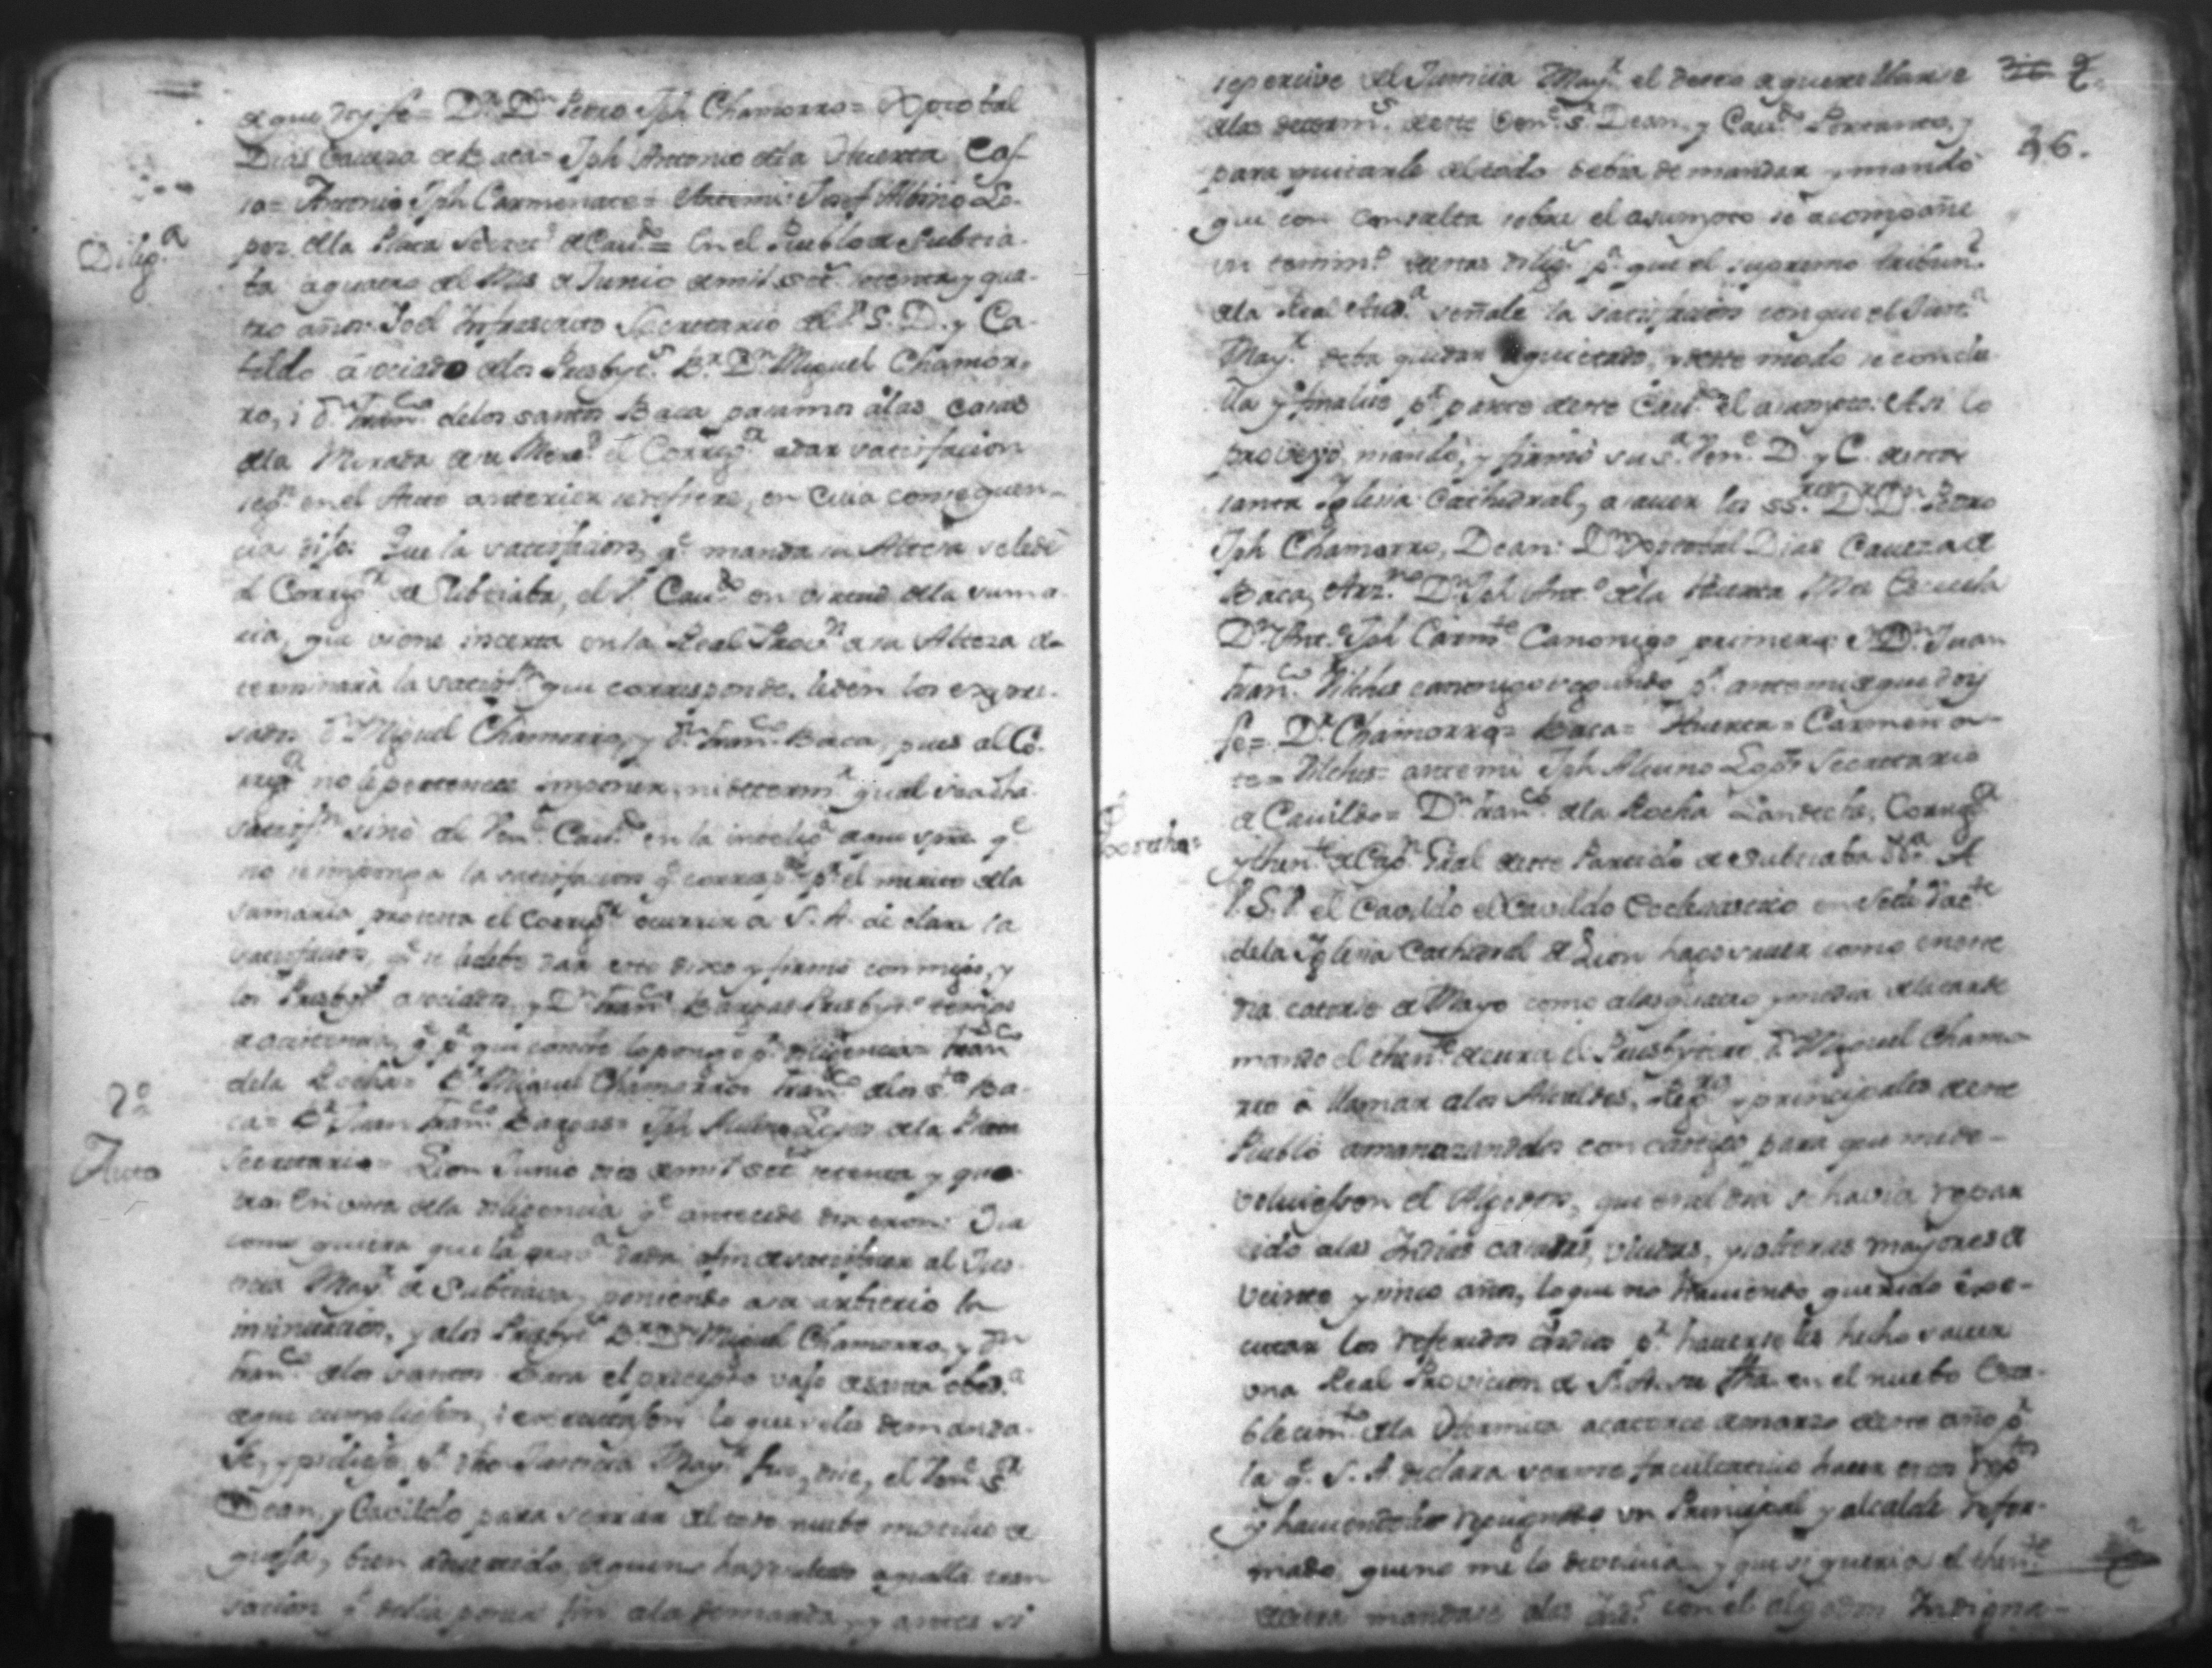 de que doy fe = Dr. Dn. Pedro Jph Chamorro = Xptobal
Dias Caveza de Baca = Jph Antonio dela Huerta Cas-
so = Antonio Jph Carmenate = Antemi Josef Albino Lo-
pez dela Plata Secret.o de Cav.do =
Dilig.a
En el Pueblo de Subtia-
ba a quatro del Mes de Junio de mil set.s setenta y qua-
tro años. Yo el Infrascrito Secretario del V. S. D. y Ca-
bildo asociado delos Presbyt.s Br. Dn. Miguel Chamor-
ro, i Dn. Fran.co delos santos Baca pasamos alas casas
dela Morada de su Merd. el Correg.r a dar satisfacion
seg.n en el Auto anterior se refiere, en cuia consequen-
cia dijo: Que la satisfacion q.e manda su Alteza sele dè
al Correg.r de Subtiaba, el V. Cav.do en virtud dela suma-
ria, que viene inserta en la Real Prov.n de su Alteza de-
terminarà la satisf.n que corresponde. le den los expre-
sados Dn. Miguel Chamorro, y Dn. Fran.co Baca, pues al Co-
rreg.r no le pertenece imponer, ni determ.r qual sea dha
satisf.n sinò al Ven.e Cav.do en la intelig.a de que spre. q.e
no se imponga la satisfacion q.e corresp.de p.r el merito dela
sumaria protesta el Correg.r ocurrir a S. A. declare la
satisfacion, q.e se le debe dar esto dixo y firmò conmigo, y
los Presbyt.s asociados, y Dn. Fran.co Bargas Presbyt.o testigo
de asistencia, q.e p.a que conste lo pongo p.r diligencia = Fran.co
dela Rocha = Br. Miguel Chamorro = Fran.co delos S.tos Ba-
ca = Br. Juan Fran.co Bargas = Jph Albino Lopez dela Plata
2.o
Auto
Secretario = Leon Junio dies de mil set.s setenta y qua-
tro. En vista dela diligencia q.e antecede dixeron: Que
como quiera que la dada afin de satisfacer al Jus-
ticia May.r de Subtiava, poniendo a su arbitrio la
insinuacion, y alos Presbyt.s Br. Dn. Miguel Chamorro, y Dn.
Fran.co delos santos Baca el precepto vajo de santa obed.a
de que cumpliesen, i executasen lo que seles demanda-
se, y pidiese p.r dho Justicia May.r fue, dice, el Ven.e S.r
Dean, y Cavildo para serrar del todo nuebo motibo de
quexa, bien advertido de que no aquella tran
sacion q.e debia poner fin ala demanda, y antes si
36.
se percive del Justicia May.r el deseo de querellarse
delas determ.s deste Ven.e S.r Dean, y Cav.do Portanto, y
para quitarle del todo debia de mandar y mandò
que con consulta sobre el asumpto se acompañe
un testim.o destas dilig.s p.a que el supremo tribun.l
dela Real Aud.a señale la satisfacion con que el Just.a
May.r deba quedar aquietado, y deste modo se conclu-
lla y finalice p.r parte deste Cav.do el asumpto. Asi lo
proveyò, mandò, y firmò su S.a Ven.e D. y C. desta
santa Iglesia Cathedral, a saver los SS.res Dr. Dn. Pedro
Jph Chamorro, Dean: Dn. Xptobal Dias Caveza de
Baca, Arz.no Dn. Jph Ant.o dela Huerta Mre Escuela
Dn. Ant.o Jph Carm.te Canonigo primero è Dn. Juan
Fran.co Vilches canonigo segundo p.r antemi de que doy
fe = Dr. Chamorro = Baca = Huerta = Carmena-
te = Vilches = antemi Jph Alvino Lop.z Secretario
de Cavildo =
Exorto
Dn. Fran.co dela Rocha Landecho, Correg.r
y then.te de Cap.n Gral deste Partido de Subtiaba &.a A
V. S. V. el Cavildo el Cavildo Ecclesiastico en Sede Vac.te
dela Iglesia Cathedral de Leon hago saver como en este
dia catorse de Mayo como alas quatro y media dela tarde
mando el then.te de cura el Presbytero Dn. Miguel Chamo-
rro à llamar alos Alcaldes, Reg.res y principales deste
Pueblo amenazandolos con castigo para que me de-
volviessen el Algodon, que en el dia se havia repar-
tido alas Indias casadas, viudas, y solteras mayores de
veinte y sinco años, lo que no haviendo querido exe-
cutar los referidos Indios p.r haverseles hecho saver
una Real Provicion de S. A. su fha. en el nuebo Esta-
blecim.to dela Hermita a catorce de marzo deste año p.r
la q.e S. A. declara serme facultativo hacer estos rep.tos
y haviendolo repugnado un Principal y alcalde refor-
mado, que no me lo devolvia y que si queria el then.te
de cura mandase alas Ind.s con el algodon Indigna-